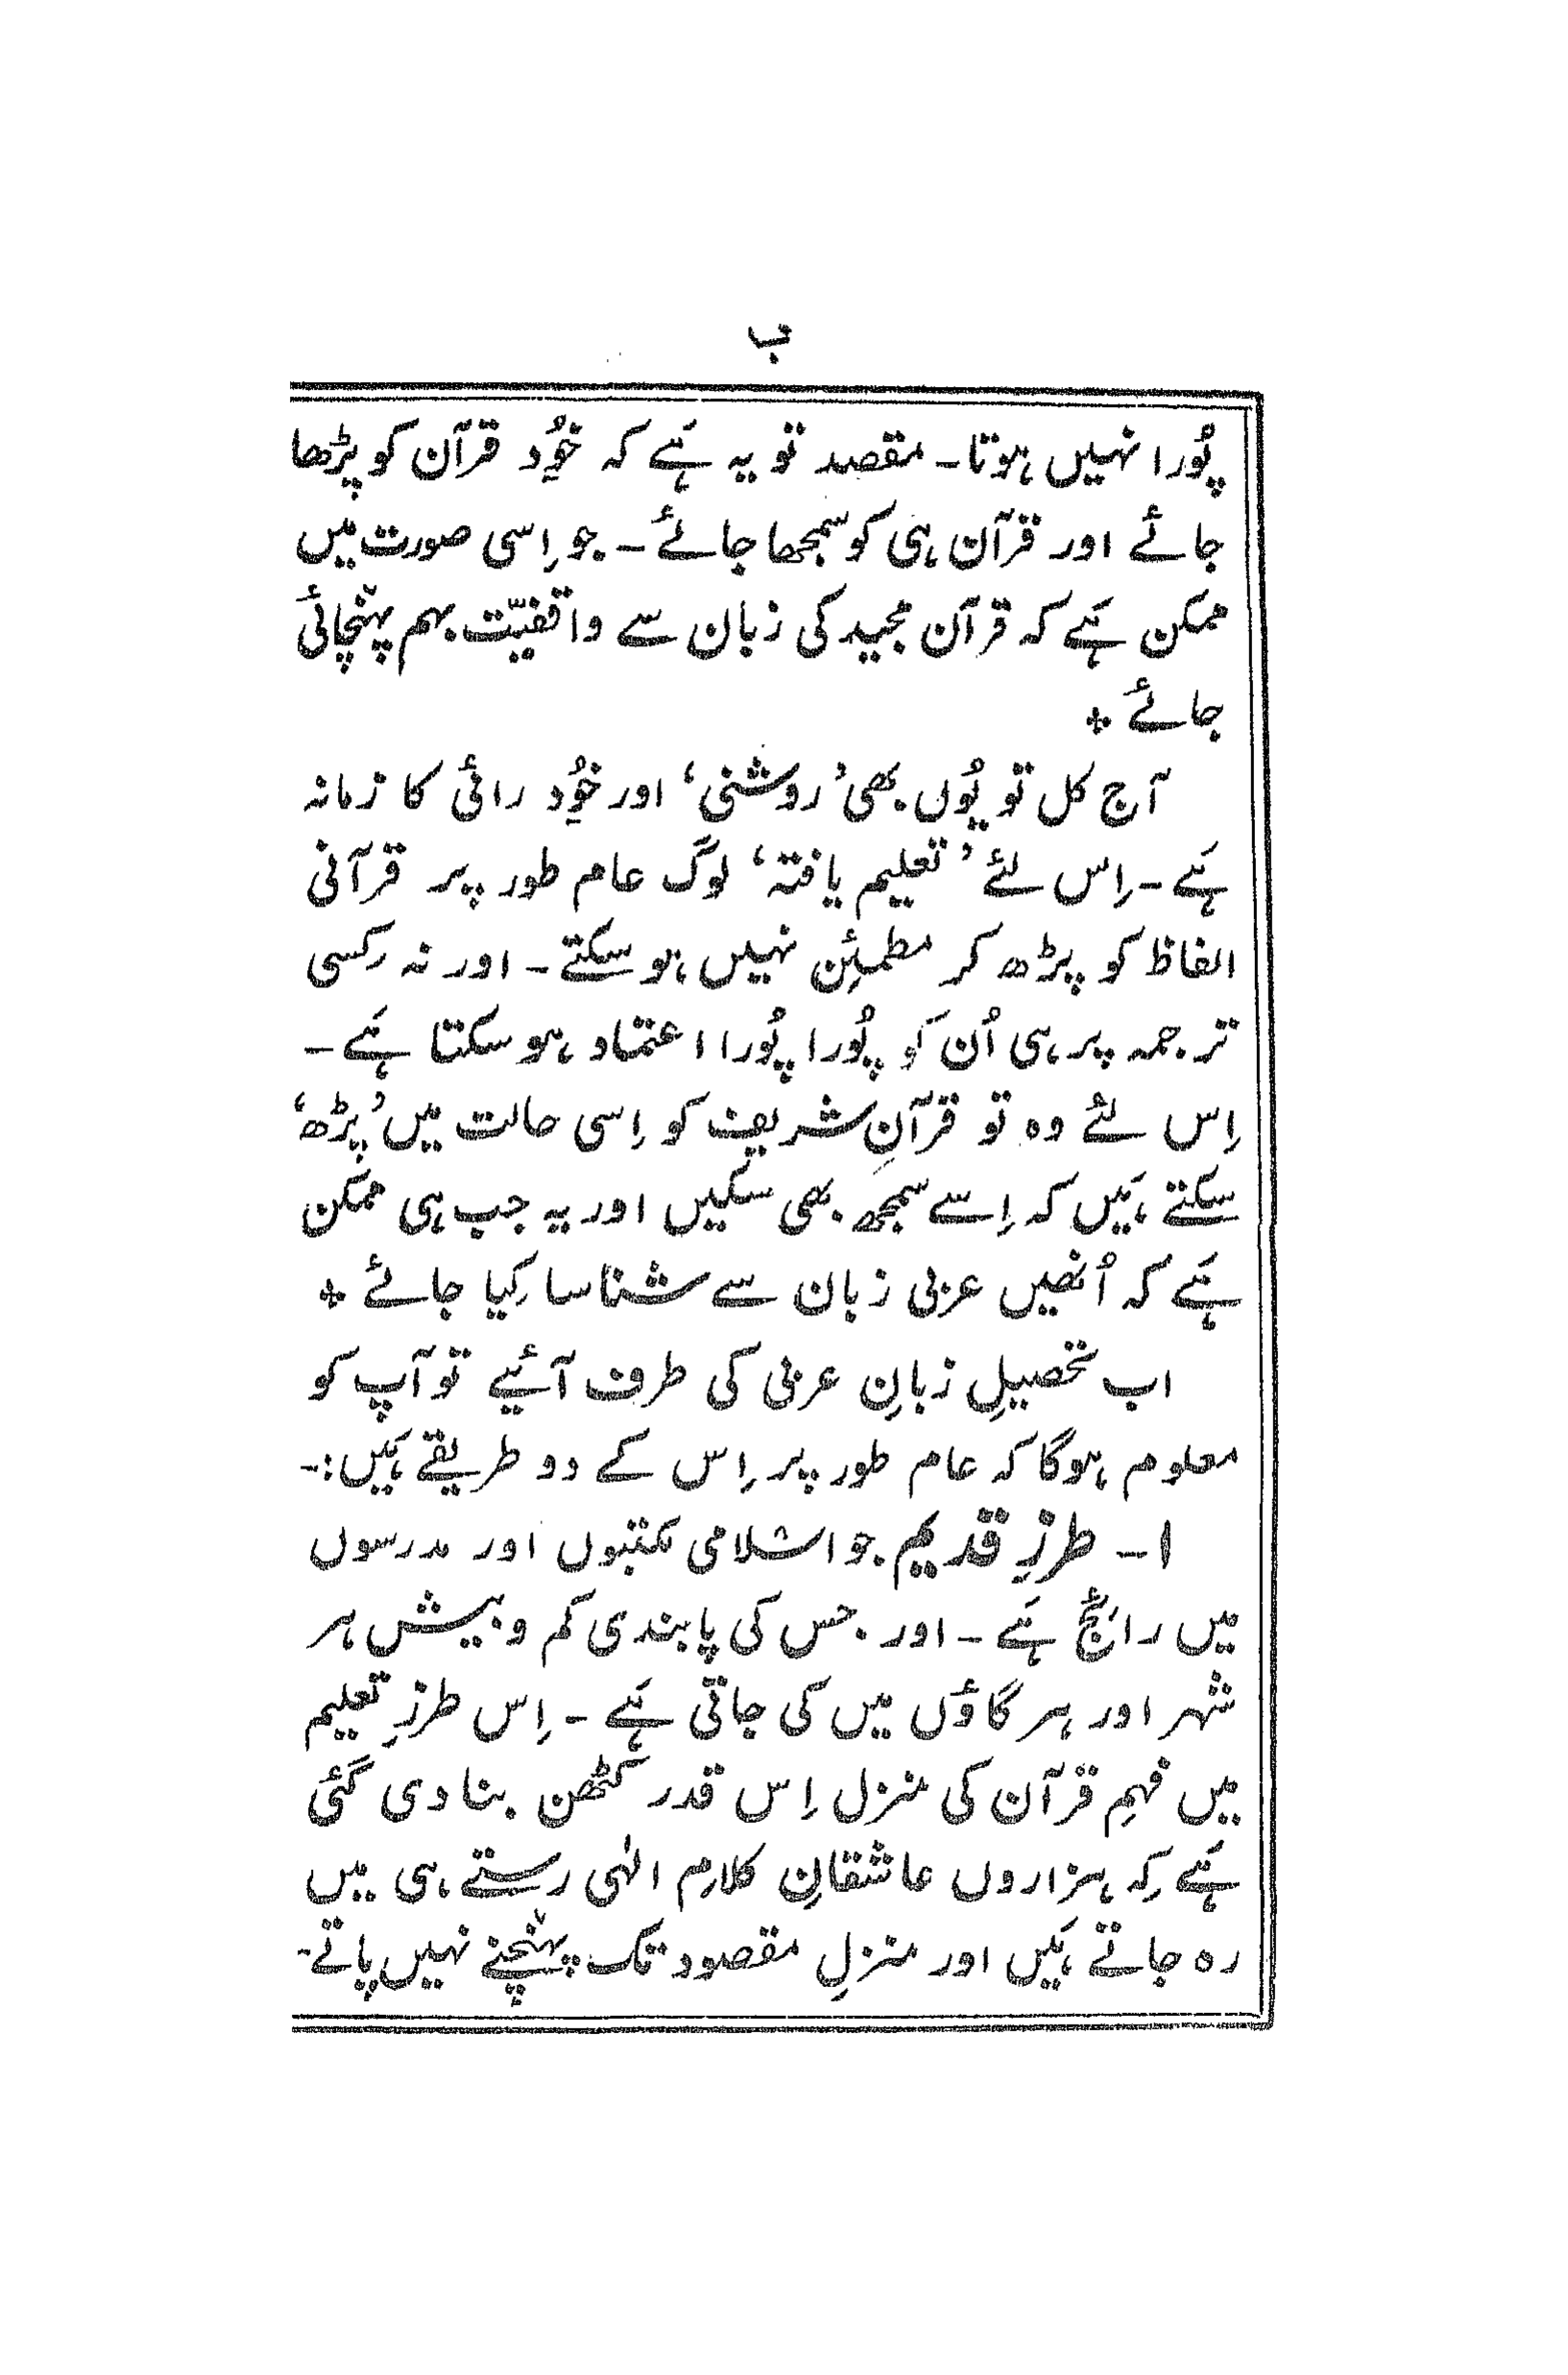 ب
پُورا نہیں ہوتا۔ مقصد تو یہ ہَے کہ خوُد قرآن کو پڑھا
جائے اور قرآن ہی کو سمجھا جائے۔ جو اِسی صورت میں
ممکن ہَے کہ قرآن مجید کی زبان سے واقفیّت بہم پہنچائی
جائے ٭
آج کل تو یُوں بھی ’روشنی‘ اور خوُد رائی کا زمانہ
ہَے۔ اِس لئے ’تعلیم یافتہ‘ لوگ عام طور پر قرآنی
الفاظ کو پڑھ کر مطمئِن نہیں ہو سکتے۔ اور نہ کِسی
ترجمہ پر ہی اُن کو پُورا پُورا اعتماد ہو سکتا ہَے۔
اِس لئے وہ تو قرآنِ شریف کو اِسی حالت میں ’پڑھ‘
سکتے ہَیں کہ اِسے سمجھ بھی سکیں اور یہ جب ہی ممکن
ہَے کہ اُنھیں عربی زبان سے شناسا کِیا جائے ٭
اب تحصیلِ زبانِ عربی کی طرف آئیے تو آپ کو
معلوم ہوگا کہ عام طور پر اِس کے دو طریقے ہَیں:۔
۱۔ طرزِ قدیم جو اسلامی مکتبوں اور مدرسوں
میں رائج ہَے۔ اور جس کی پابندی کم و بیش ہر
شہر اور ہر گاؤں میں کی جاتی ہَے۔ اِس طرزِ تعلیم
میں فہمِ قرآن کی منزل اِس قدر کٹھن بنا دی گئی
ہَے کِہ ہزاروں عاشقانِ کلامِ الٰہی رستے ہی میں
رہ جاتے ہَیں اور منزلِ مقصود تک پہنچنے نہیں پاتے۔